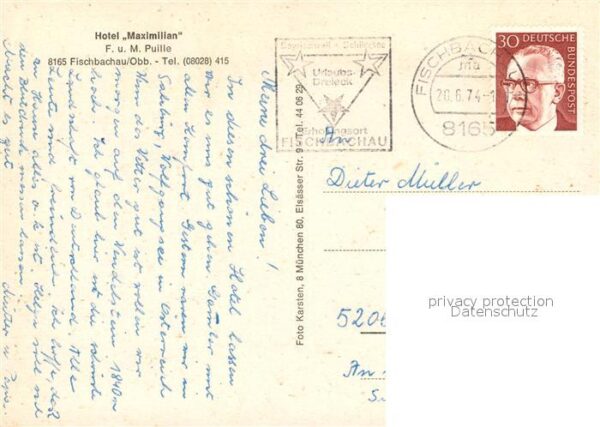 Hotel „Maximilian"
F. u. M. Puille
8165 Fischbachau/Obb. - Tel. (08028) 415
Bayrischzell - Schliersee
Urlaubs-
Dreieck
Erholungsort
FISCHBACHAU
FISCHBACHAU
20.6.74-1
8165
30 DEUTSCHE
BUNDESPOST
Meine drei Lieben!
In diesem schönen Hotel lassen
wir es uns gut gehen Zimmer mit
allem Komfort. Gestern waren wir in
Salzburg, Wolfgangsee in Österreich
Wenn das Wetter gut ist wollen wir
morgen auf den Wendelstein 1840 m
hoch. Ich glaub hier ist die schönste
Landschaft von Deutschland. Alle
Leute sind freundlich. Ich hoffe, daß
zu Hause alles o.k. ist. Helga soll sich
den Blutdruck messen lassen.
Macht's gut
Mutter u. Papa.
Foto Karsten, 8 München 80, Elsässer Str. 9 Tel. 44 06 29
An
Dieter Müller
520
An
privacy protection
Datenschutz